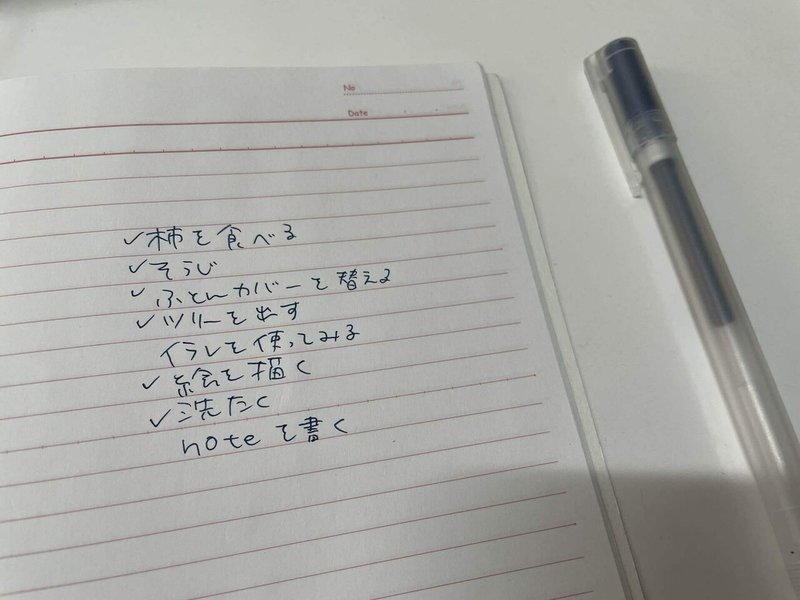 No
Date
✓柿を食べる
✓そうじ
✓ふとんカバーを替える
✓ツリーを出す
イラレを使ってみる
✓絵を描く
✓洗たく
noteを書く